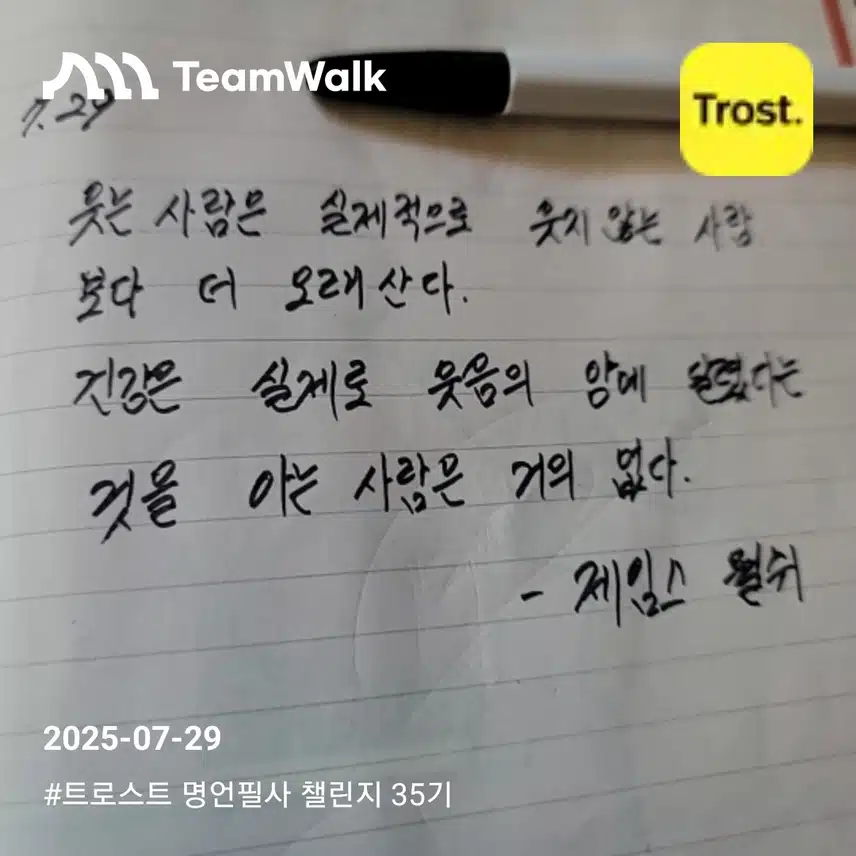 TeamWalk
Trost.
7. 29
웃는 사람은 실제적으로 웃지 않는 사람
보다 더 오래 산다.
건강은 실제로 웃음의 양에 달렸다는
것을 아는 사람은 거의 없다.
- 제임스 월쉬
2025-07-29
#트로스트 명언필사 챌린지 35기